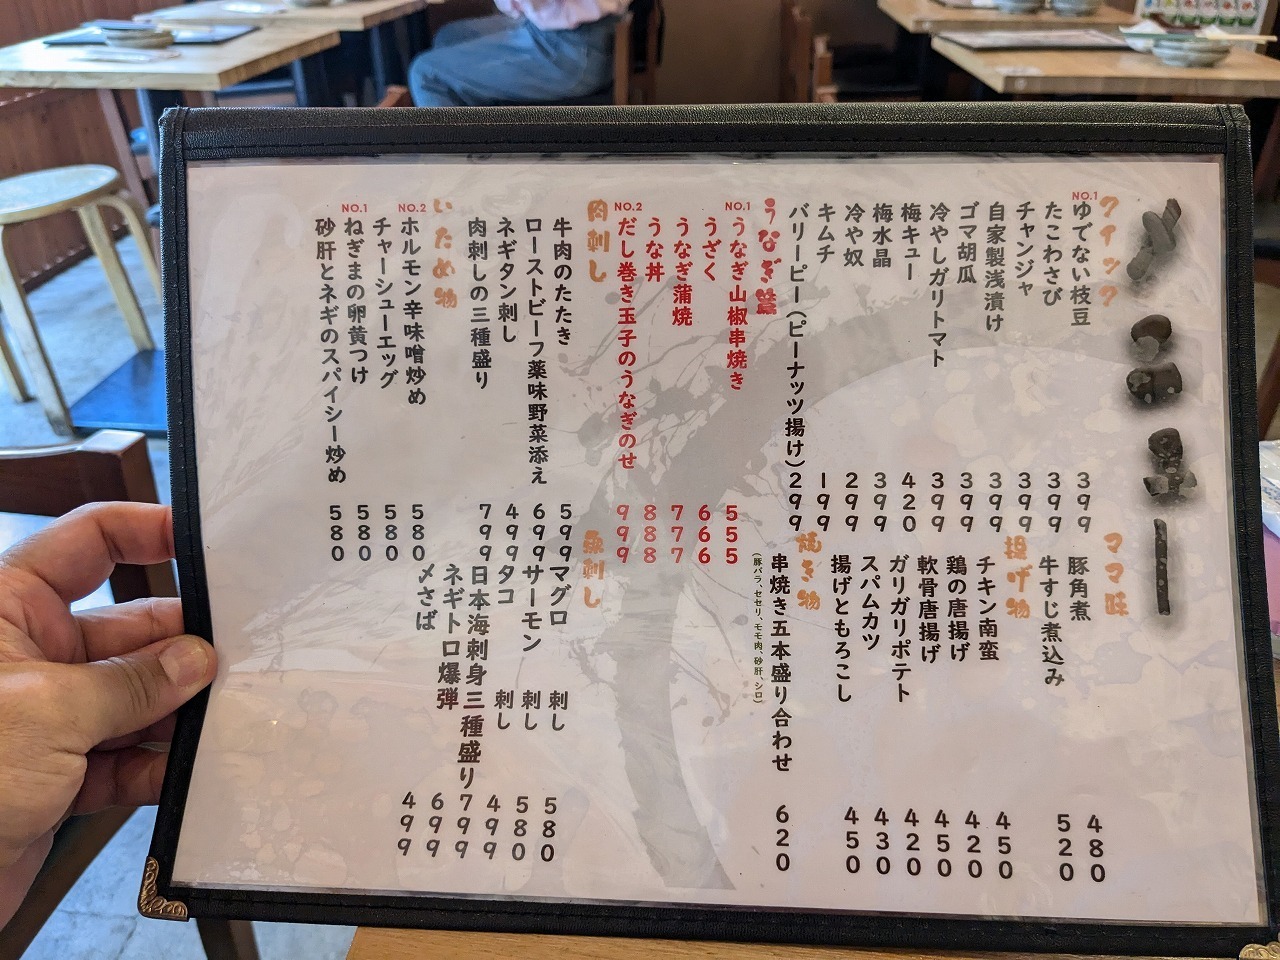 クイック
NO.1
ゆでない枝豆 399
たこわさび 399
チャンジャ 399
自家製浅漬け 399
ゴマ胡瓜 399
冷やしガリトマト 399
梅キュー 420
梅水晶 399
冷や奴 299
キムチ 199
バリーピー(ピーナッツ揚げ) 299
うなぎ
NO.1
うなぎ山椒串焼き 555
うざく 666
うなぎ蒲焼 777
うな丼 888
NO.2
だし巻き玉子のうなぎのせ 999
肉刺し
牛肉のたたき 599
ローストビーフ薬味野菜添え 699
ネギタン刺し 499
肉刺しの三種盛り 799
いため物
NO.2
ホルモン辛味噌炒め 580
チャーシューエッグ 580
NO.1
ねぎまの卵黄つけ 580
砂肝とネギのスパイシー炒め 580
ママ味
豚角煮 480
牛すじ煮込み 520
揚げ物
チキン南蛮 450
鶏の唐揚げ 420
軟骨唐揚げ 450
ガリガリポテト 420
スパムカツ 430
揚げともろこし 450
焼き物
串焼き五本盛り合わせ 620
(豚バラ、セセリ、モモ肉、砂肝、シロ)
魚刺し
マグロ 刺し 580
サーモン 刺し 580
タコ 刺し 499
日本海刺身三種盛り 799
ネギトロ爆弾 699
〆さば 499